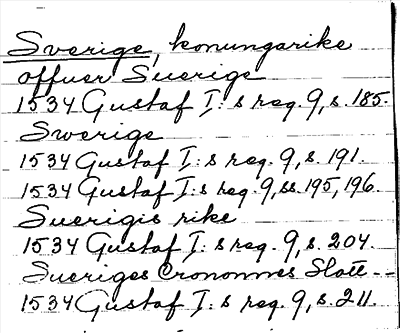 Sverige, konungarike
offuer Suerige
1534 Gustaf I:s reg. 9, s. 185.
Swerige
1534 Gustaf I:s reg. 9, s. 191.
1534 Gustaf I:s reg. 9, ss. 195, 196.
Suerigis rike
1534 Gustaf I:s reg. 9, s. 204.
Sueriges Crononnes Slott --
1534 Gustaf I:s reg. 9, s. 211.